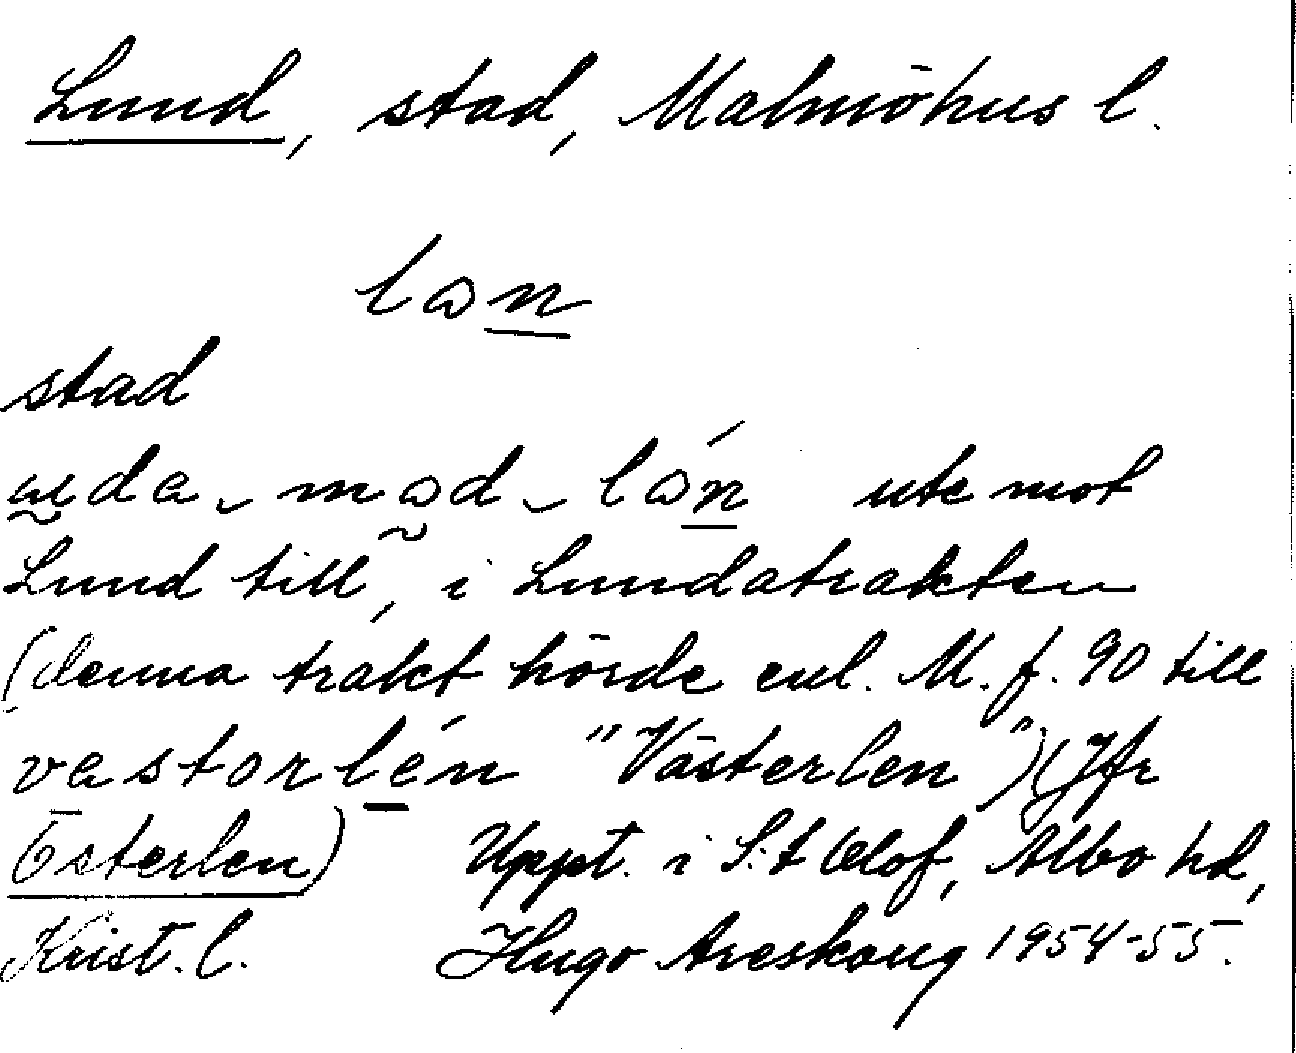 Lund, stad, Malmöhus l.
lɷn
stad
uda mɷd lɷ́n ute mot
Lund till, i Lundatrakten
(denna trakt hörde enl. M. f. 90 till
vastorlén "Västerlen") (Jfr
Österlen) Uppt. i S:t Olof, Albo hd,
Krist. l. Hugo Areskoug 1954-55.